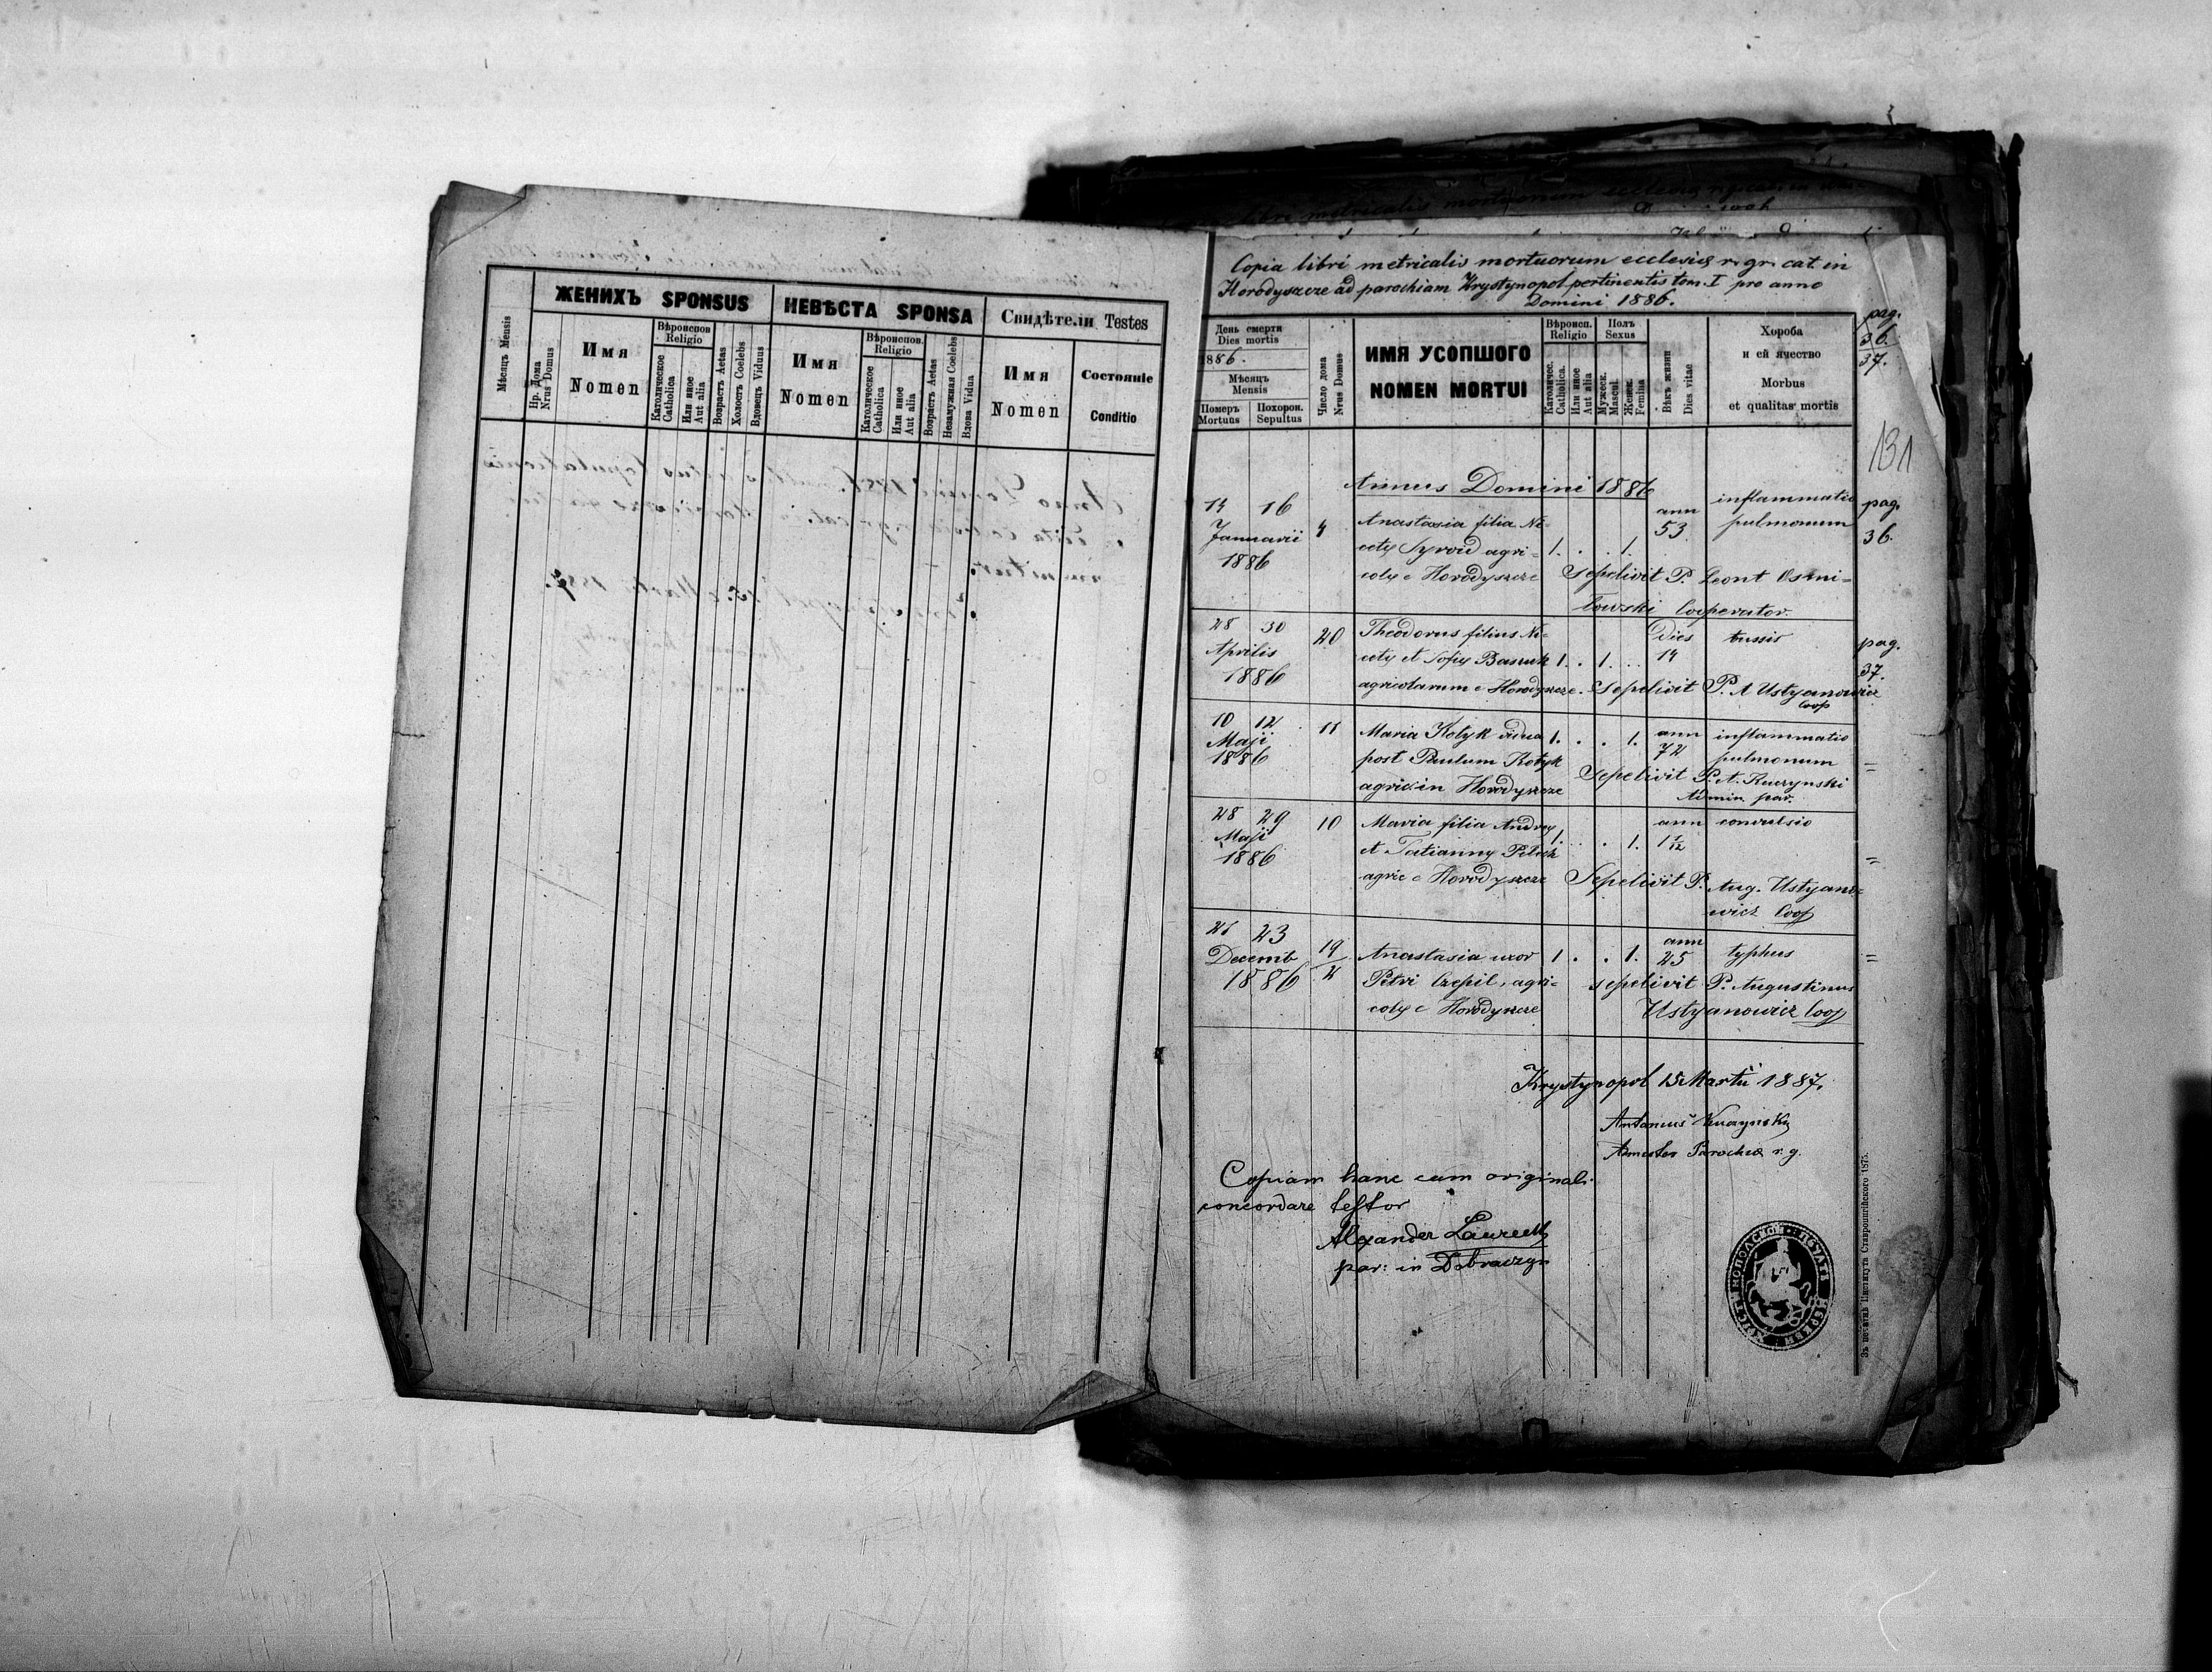 ЖЕНИХЪ SPONSUS
НЕВѢСТА SPONSA
Свидѣтели Testes
Мѣсяцъ Mensis
Нр. Дома
Nrus Domus
Имя
Nomen
Вѣроиспов
Religio
Католическое
Catholica
Или иное
Aut alia
Возрастъ Aetas
Холостъ Coelebs
Вдовецъ Viduus
Имя
Nomen
Вѣроиспов.
Religio
Католическое
Catholica
Или иное
Aut alia
Возрастъ Aetas
Незамужная Coelebs
Вдова Vidua
Имя
Nomen
Состояніе
Conditio
Copia libri metricalis mortuorum ecclesiæ r. gr. cat. in
Horodyszcze ad parochiam Krystynopol pertinentis tom. I pro anno
Domini 1886.
pag.
36.
37.
День смерти
Dies mortis
1886.
Мѣсяцъ
Mensis
Померъ
Mortuus
Похорон.
Sepultus
Число дома
Nrus Domus
ИМЯ УСОПШОГО
NOMEN MORTUI
Вѣроисп.
Religio
Католичес.
Catholica.
Или иное
Aut alia
Полъ
Sexus
Мужеск.
Mascul.
Женск.
Femina
Вѣкъ жизни
Dies vitae
Хороба
и ей ячество
Morbus
et qualitas mortis
131
Annus Domini 1886
14 16
Januarii
1886
4
Anastasia filia Ni-
cetæ Syroid agri-
colæ e Horodyszcze
1. . . 1.
ann
53
inflammatio
pulmonum
pag.
36.
Sepelivit P. Leont Osmi-
lowski Cooperator.
28 30
Aprilis
1886
20
Theodorus filius Ni-
cetæ et Sofiæ Baszuk
agricolarum e Horodyszcze.
1. . 1. .
Dies
14
tussis
pag.
37.
Sepelivit P. A Ustyanowicz
Coop
10 12
Maji
1886
11
Maria Kotyk vidua
post Paulum Kotyk
agric. in Horodyszcze
1. . . 1.
ann
72
inflammatio
pulmonum
=
Sepelivit P. A. Kuczynski
Admin. par.
28 29
Maji
1886
10
Maria filia Andreæ
et Tatiannæ
agric e Horodyszcze
1. . . 1.
ann
1 1/12
convulsio
=
Sepelivit P. Aug. Ustyano-
wicz Coop
21 23
Decemb
1886
19
2
Anastasia uxor
Petri Czepil, agri-
colæ e Horodyszcze
1 . . 1.
ann
25
typhus
=
sepelivit P. Augustinus
Ustyanowicz Coop
Krystynopol 15 Martii 1887.
Antonius Kuczynski
Parochiæ r. g.
Copiam hanc cum originali
concordare testor
Alexander
par: in Dobraczyn
Зъ печатнѣ Института Ставропигійского 1875.